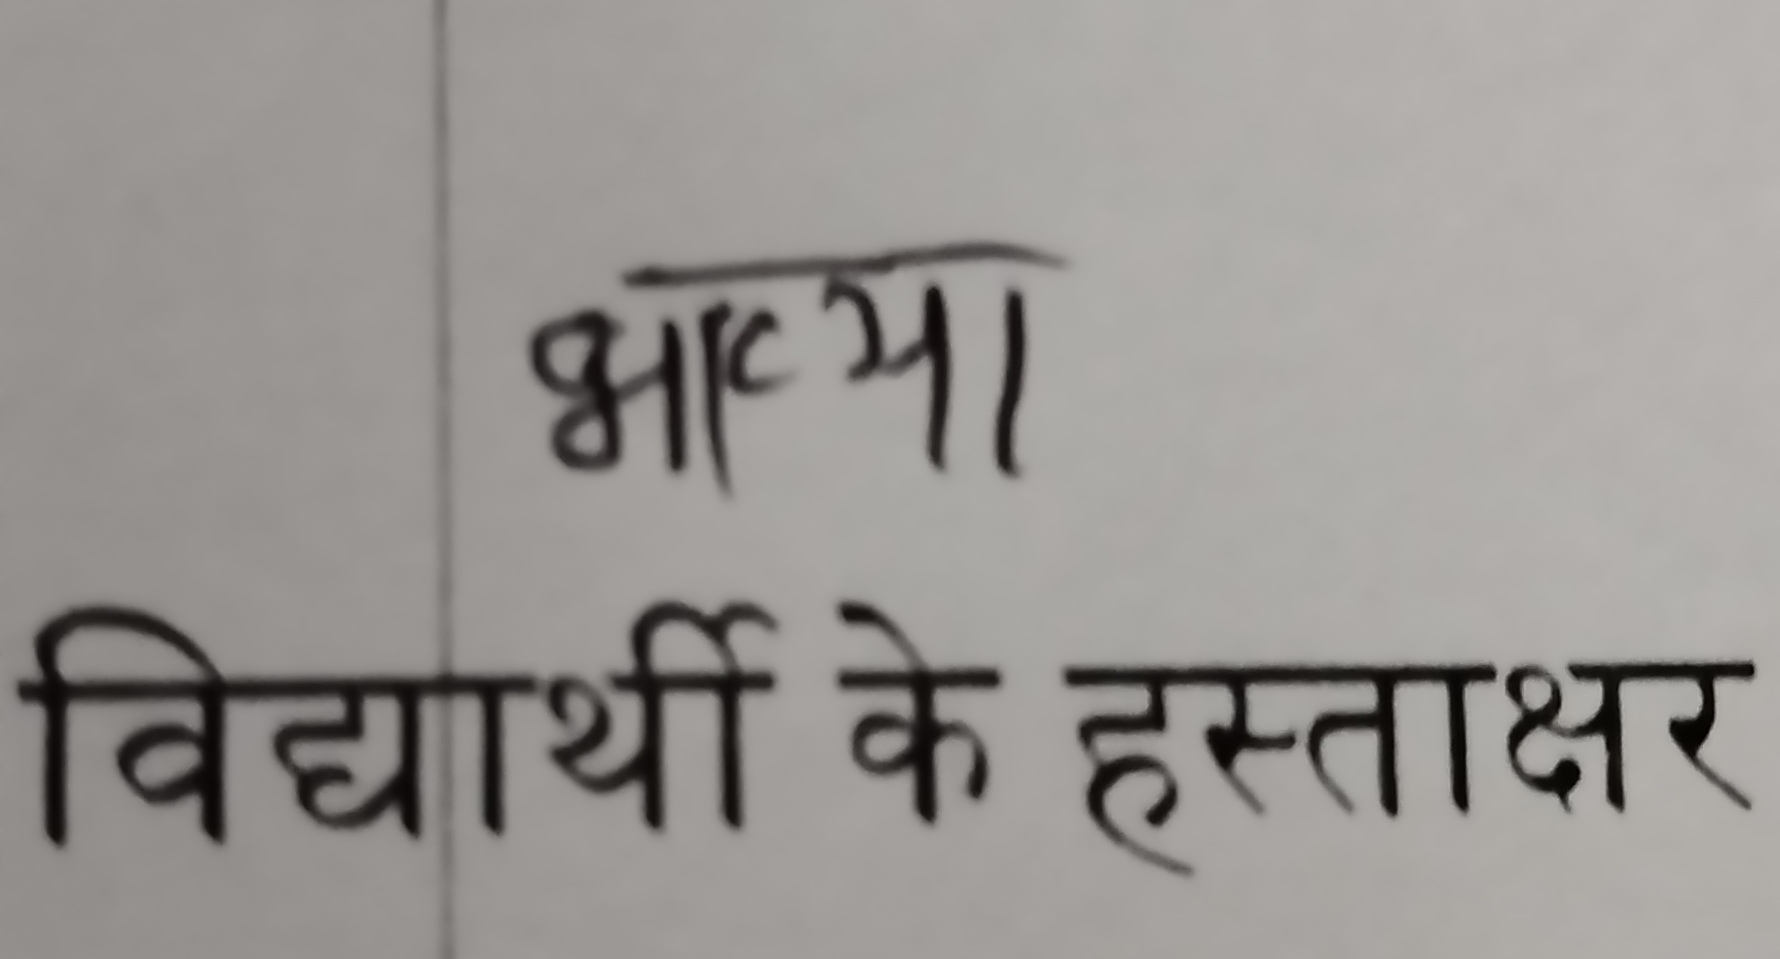 भाव्या
विद्यार्थी के हस्ताक्षर